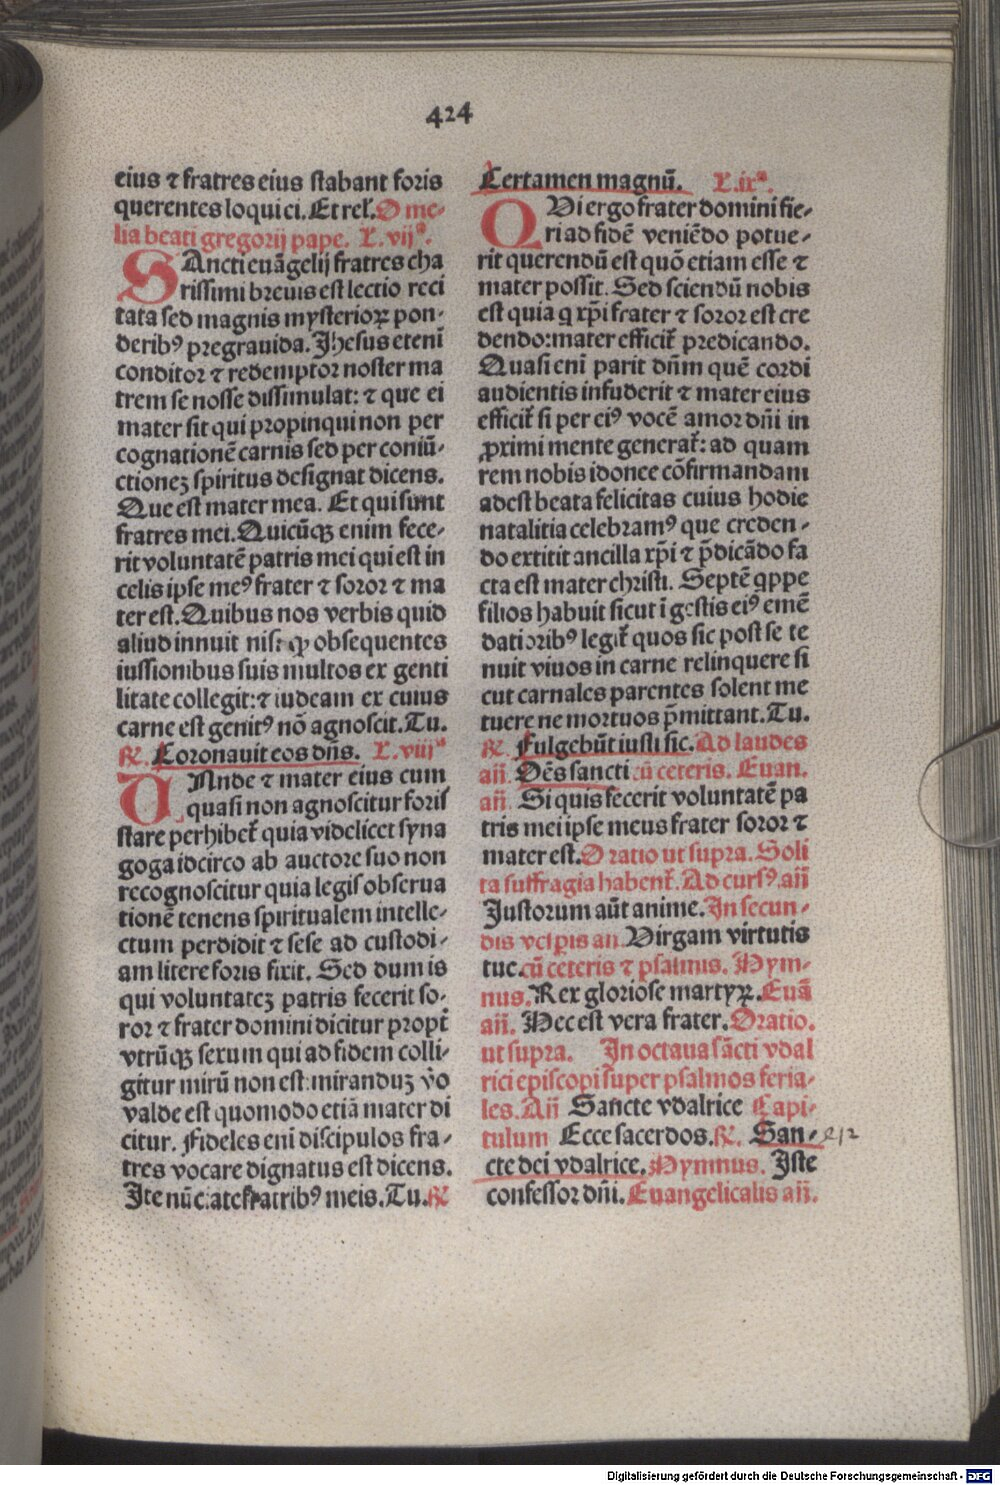 424
eius ⁊ fratres eius stabant foris
querentes loqui ei. Et rel̃. Ome-
lia beati gregorij pape. L. vijª.
SAncti euãgelij fratres cha
rissimi breuis est lectio reci
tata sed magnis mysterioꝝ pon-
deribꝰ pregrauida. Jhesus etenĩ
conditor ⁊ redemptor noster ma
trem se nosse dissimulat: ⁊ que ei
mater sit qui propinqui non per
cognationẽ carnis sed per coniũ-
ctionez spiritus designat dicens.
Que est mater mea. Et qui sunt
fratres mei. Quicũqꝫ enim fece-
rit voluntatẽ patris mei qui est in
celis ipse meꝰ frater ⁊ soror ⁊ ma
ter est. Quibus nos verbis quid
aliud innuit nisi ꝙ obsequentes
iussionibus suis multos ex genti
litate collegit: ⁊ iudeam ex cuius
carne est genitꝰ nõ agnoscit. Tu.
℟. Coronauit eos dñs. L. viijª
VNde ⁊ mater eius cum
quasi non agnoscitur foris
stare perhibet̃ quia videlicet syna
goga idcirco ab auctore suo non
recognoscitur quia legis obserua
tionẽ tenens spiritualem intelle-
ctum perdidit ⁊ sese ad custodi-
am litere foris fixit. Sed dum is
qui voluntatez patris fecerit so-
ror ⁊ frater domini dicitur propt̃
vtrũqꝫ sexum qui ad fidem colli-
gitur mirũ non est: miranduz ṽo
valde est quomodo etiã mater di
citur. Fideles eni discipulos fra-
tres vocare dignatus est dicens.
Ite nũciate fratribꝰ meis. Tu. ℟
Certamen magnũ. L. ixª.
QVi ergo frater domini fie-
ri ad fidẽ veniẽdo potue-
rit querendũ est quõ etiam esse ⁊
mater possit. Sed sciendũ nobis
est quia q xp̃i frater ⁊ soror est cre
dendo: mater efficit̃ predicando.
Quasi eni parit dñm quẽ cordi
audientis infuderit ⁊ mater eius
efficit̃ si per eiꝰ vocẽ amor dñi in
ꝓximi mente generat̃: ad quam
rem nobis idonee cõfirmandam
adest beata felicitas cuius hodie
natalitia celebramꝰ que creden-
do extitit ancilla xp̃i ⁊ p̃dicãdo fa
cta est mater christi. Septẽ qppe
filios habuit sicut ĩ gestis eiꝰ emẽ
datioribꝰ legit̃ quos sic post se te
nuit viuos in carne relinquere si
cut carnales parentes solent me
tuere ne mortuos p̃mittant. Tu.
℟. Fulgebũt iusti sic. Ad laudes
añ. Oẽs sancti cũ ceteris. Euan.
añ. Si quis fecerit voluntatẽ pa
tris mei ipse meus frater soror ⁊
mater est. Oratio ut supra. Soli
ta suffragia habent̃. Ad cursꝰ. añ
Justorum aũt anime. In secun-
dis vesp̃is an. Virgam virtutis
tue. cũ ceteris ⁊ psalmis. Hym-
nus. Rex gloriose martyꝝ. Euã
añ. Hec est vera frater. Oratio.
ut supra. In octaua sãcti vdal
rici episcopi super psalmos feria-
les. Añ Sancte vdalrice Capi-
tulum Ecce sacerdos. ℟. San-
cte dei vdalrice. Hymnus. Iste
confessor dñi. Euangelicalis añ.
Digitalisierung gefördert durch die Deutsche Forschungsgemeinschaft - DFG